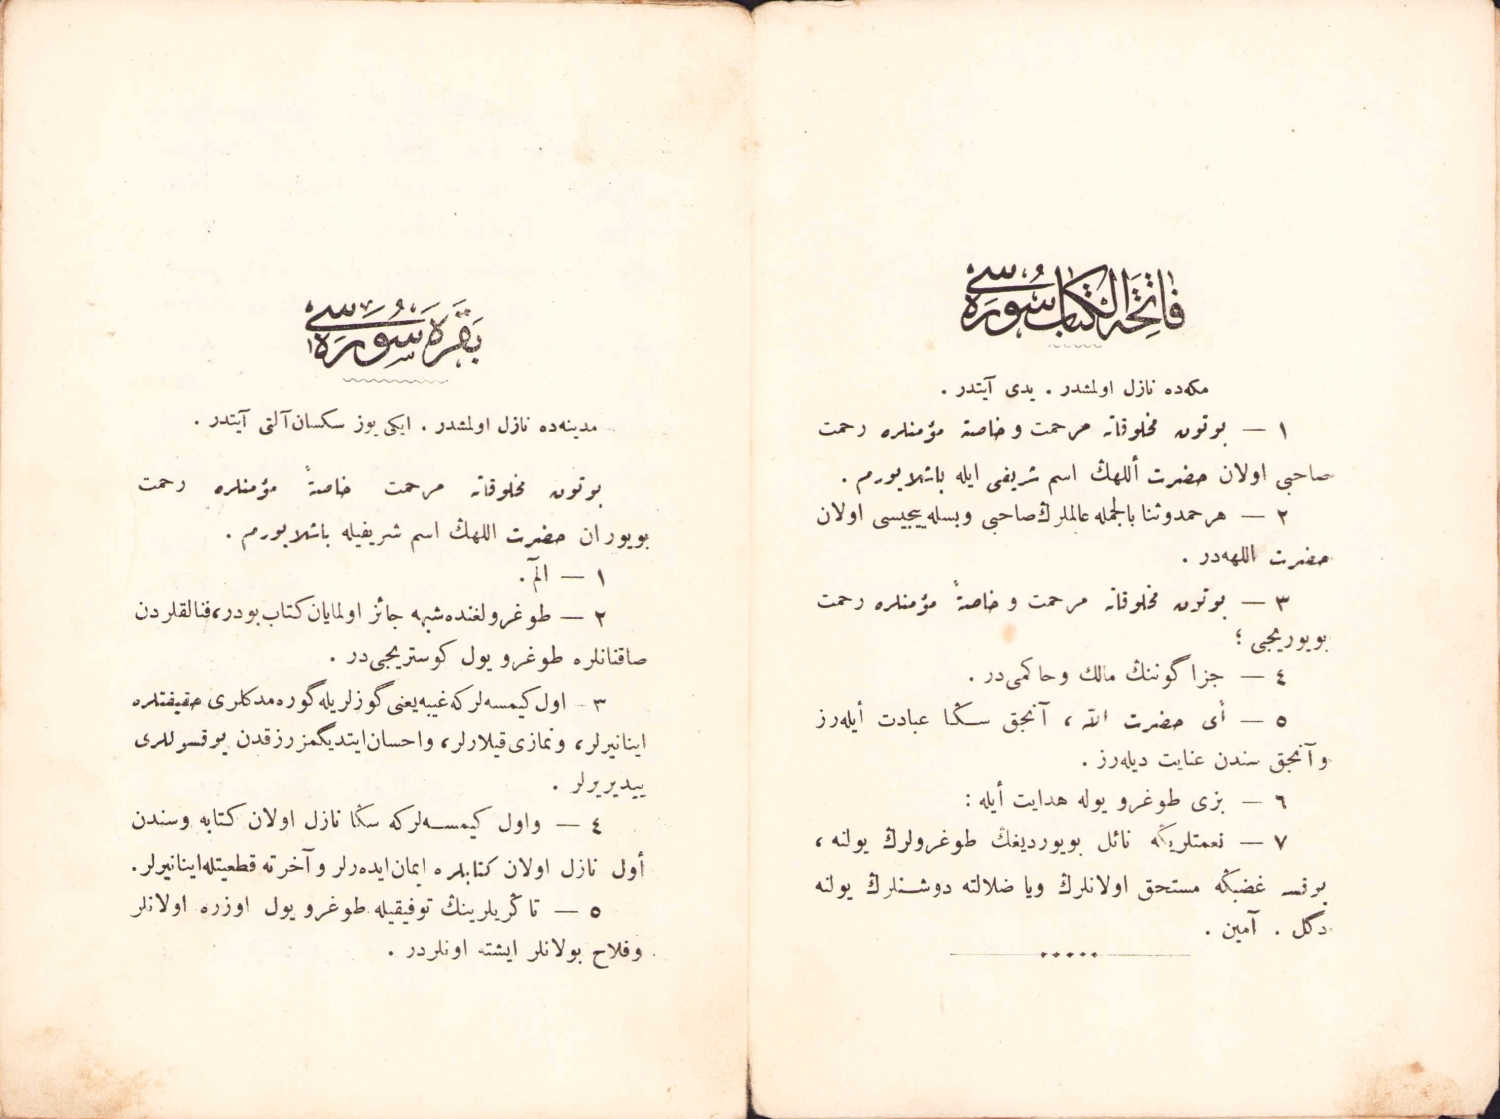 فاتحة الكتاب سوره‌سی
مكه‌ده نازل اولمشدر . یدی آیتدر .
١ — بوتون مخلوقاته مرحمت و خاصة مؤمنلره رحمت
صاحبی اولان حضرت أللهڭ اسم شریفی ایله باشلایورم .
٢ — هر حمدوثنا بالجمله عالملرڭ صاحبی و بسله‌ییجیسی اولان
حضرت اللهه‌در .
٣ — بوتون مخلوقاته مرحمت و خاصةً مؤمنلره رحمت
بویوریجی ؛
٤ — جزا گوننڭ مالك و حاكمی‌در .
٥ — أی حضرت الله ، آنجق سڭا عبادت أیله‌رز
و آنجق سندن عنایت دیله‌رز .
٦ — بزی طوغرو یوله هدایت أیله :
٧ — نعمتلریڭه نائل بویوردیغڭ طوغرولرڭ یولنه ،
یوقسه غضبڭه مستحق اولانلرڭ ویا ضلالته دوشنلرڭ یولنه
دگل . آمین .
بقره سوره‌سی
مدینه‌ده نازل اولمشدر . ایكی یوز سكسان آلتی آیتدر .
بوتون مخلوقاته مرحمت خاصةً مؤمنلره رحمت
بویوران حضرت اللهڭ اسم شریفیله باشلایورم .
١ — الٓمٓ .
٢ — طوغرولغنده شبهه جائز اولمایان كتاب بودر، فنالقلردن
صاقنانلره طوغرو یول كوستریجی‌در .
٣ — اول كیمسه‌لركه غیبه یعنی گوزلریله گوره‌مدكلری حقیقتلره
اینانیرلر، و نمازی قیلارلر، و احسان ایتدیگمز رزقدن یوقسوللری
ییدیریرلر .
٤ — و اول كیمسه‌لركه سڭا نازل اولان كتابه و سندن
أول نازل اولان كتابلره ایمان ایده‌رلر و آخرته قطعیتله اینانیرلر.
٥ — تاڭریلرینڭ توفیقیله طوغرو یول اوزره اولانلر
و فلاح بولانلر ایشته اونلردر .